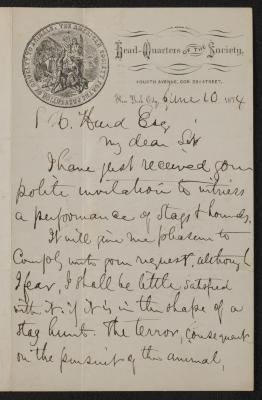 THE AMERICAN SOCIETY FOR THE PREVENTION OF CRUELTY TO ANIMALS
Head-Quarters OF THE Society,
FOURTH AVENUE, COR. 22d STREET,
New York City, June 10 1874
Hurd Esq
My dear Sir
I have just received your
polite invitation to witness
a performance of Stags & hounds.
It will give me pleasure to
Comply with your request, although
I fear, I shall be little satisfied
with it, if it is in the shape of a
stag hunt. The terror, consequent
on the pursuit of this animal,